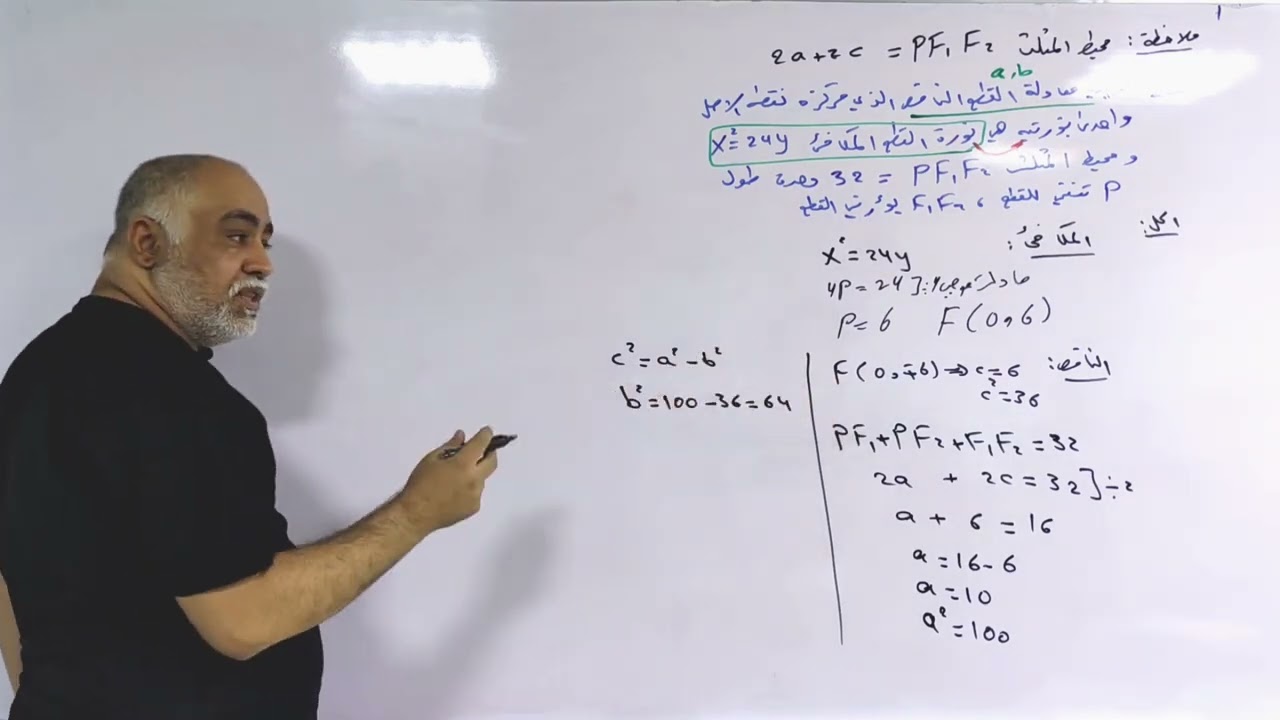 ملاحظة: محيط المثلث 2a+2c = PF₁F₂
a,b
معادلة القطع الناقص الذي مركزه نقطة الاصل
واحدى بؤرتيه هي بؤرة القطع المكافئ x²=24y
ومحيط المثلث PF₁F₂ = 32 وحدة طول
P تنتمي للقطع ، F₁F₂ بؤرتي القطع
الحل:
المكافئ: x²=24y
4P=24
P=6 F(0,6)
الناقص: F(0,∓6) ⇒ c=6
c²=36
PF₁+PF₂+F₁F₂=32
2a + 2c=32]÷2
a + 6 = 16
a=16-6
a=10
a²=100
c²=a²-b²
b²=100-36=64